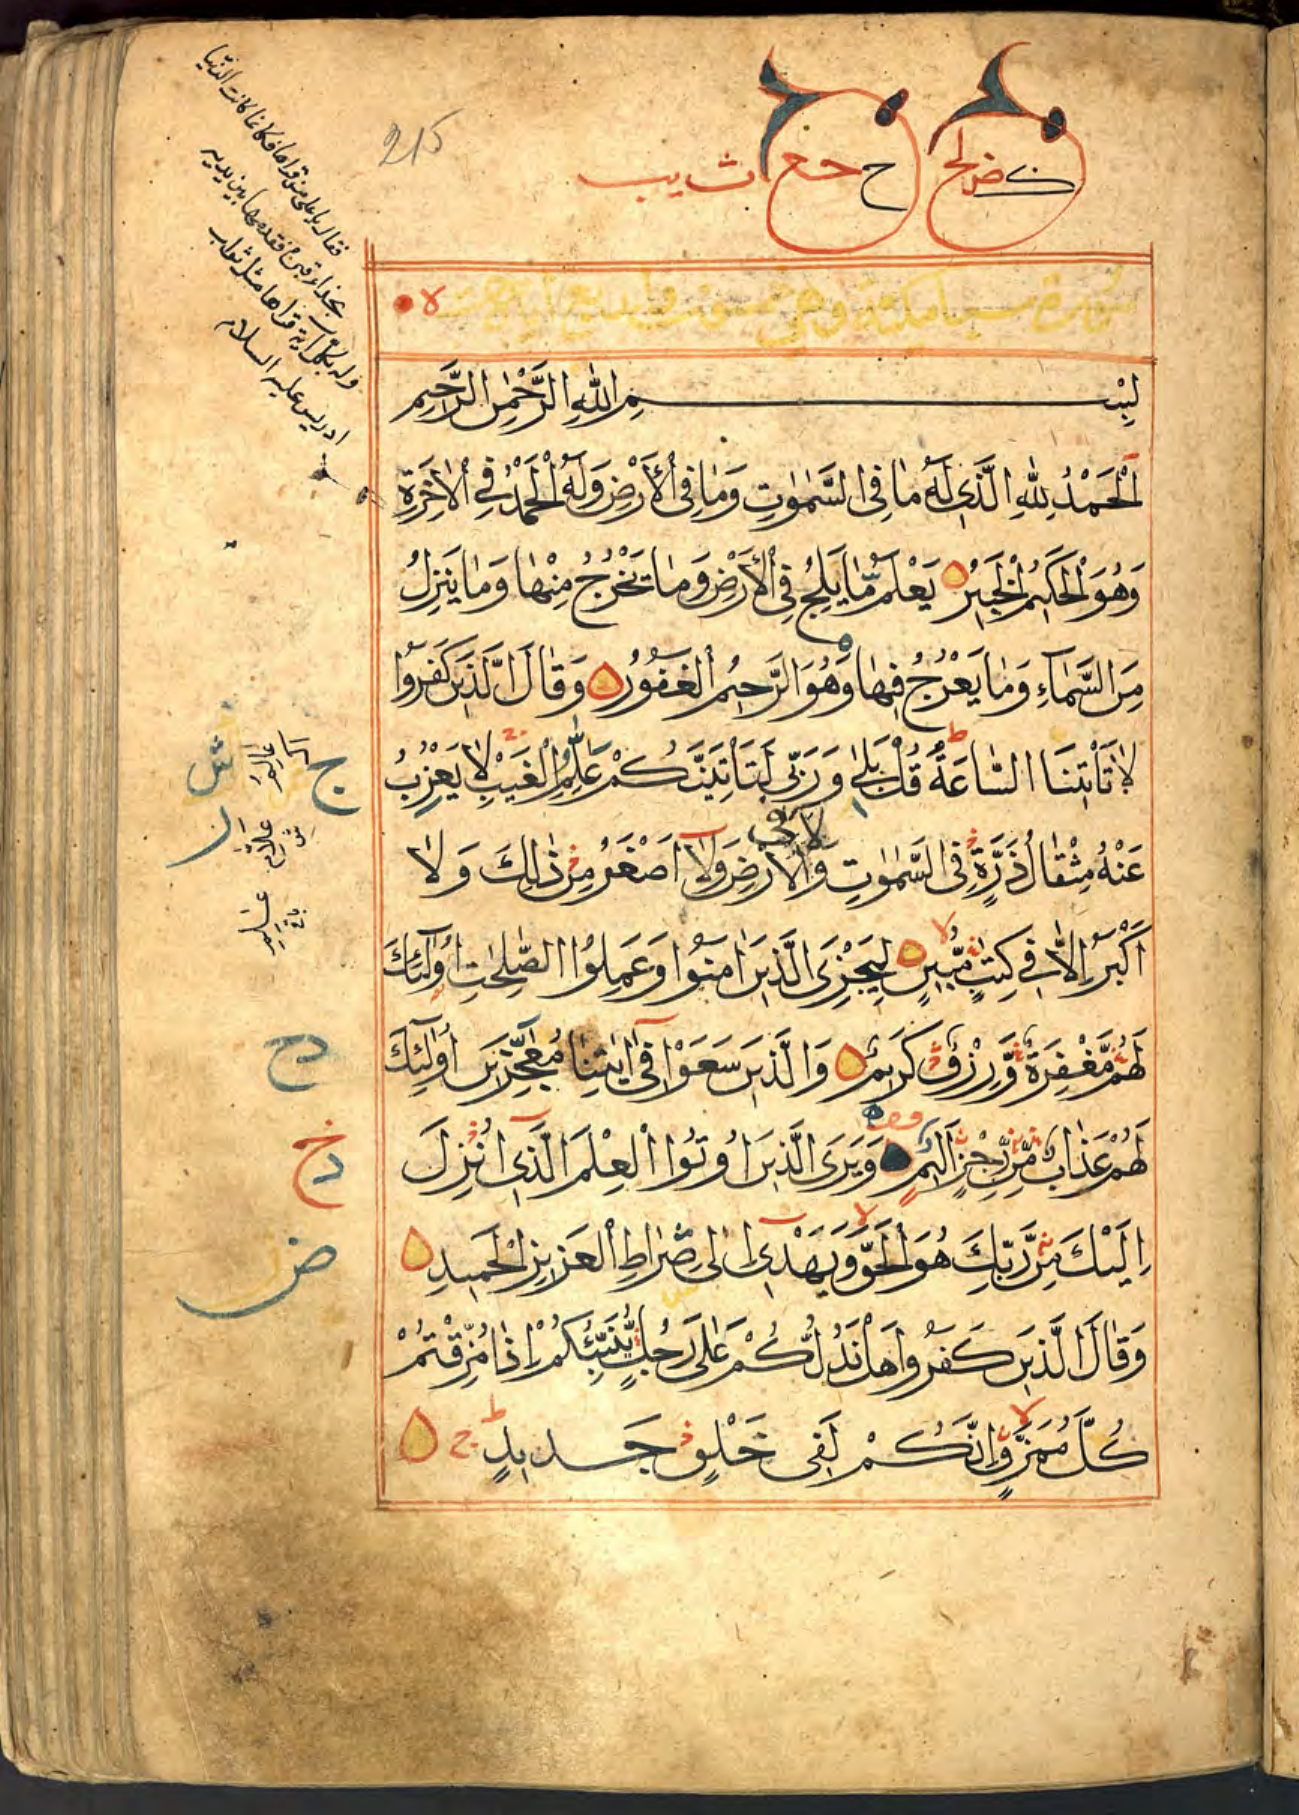 215
سورة سبا مكية وهي خمسون واربع ايات
بِسْمِ اللّٰهِ الرَّحْمٰنِ الرَّحِيمِ
اَلْحَمْدُ لِلّٰهِ الَّذِي لَهُ مَا فِي السَّمٰوٰتِ وَمَا فِي الْأَرْضِ وَلَهُ الْحَمْدُ فِي الْاٰخِرَةِ
وَهُوَ الْحَكِيمُ الْخَبِيرُ يَعْلَمُ مَا يَلِجُ فِي الْأَرْضِ وَمَا تَخْرُجُ مِنْهَا وَمَا يَنْزِلُ
مِنَ السَّمَاءِ وَمَا يَعْرُجُ فِيهَا وَهُوَ الرَّحِيمُ الْغَفُورُ وَقَالَ الَّذِينَ كَفَرُوا
لَا تَأْتِينَا السَّاعَةُ قُلْ بَلٰى وَرَبِّي لَتَأْتِيَنَّكُمْ عَالِمُ الْغَيْبِ لَا يَعْزُبُ
عَنْهُ مِثْقَالُ ذَرَّةٍ فِي السَّمٰوٰتِ وَلَا فِي الْأَرْضِ وَلَا اَصْغَرُ مِنْ ذٰلِكَ وَلَا
اَكْبَرُ اِلَّا فِي كِتٰبٍ مُبِينٍ لِيَجْزِيَ الَّذِينَ اٰمَنُوا وَعَمِلُوا الصّٰلِحٰتِ اُولٰئِكَ
لَهُمْ مَغْفِرَةٌ وَرِزْقٌ كَرِيمٌ وَالَّذِينَ سَعَوْا فِي اٰيٰتِنَا مُعَجِّزِينَ اُولٰئِكَ
لَهُمْ عَذَابٌ مِنْ رِجْزٍ اَلِيمٍ وَيَرَى الَّذِينَ اُوتُوا الْعِلْمَ الَّذِي اُنْزِلَ
اِلَيْكَ مِنْ رَبِّكَ هُوَ الْحَقَّ وَيَهْدِي اِلٰى صِرَاطِ الْعَزِيزِ الْحَمِيدِ
وَقَالَ الَّذِينَ كَفَرُوا هَلْ نَدُلُّكُمْ عَلٰى رَجُلٍ يُنَبِّئُكُمْ اِذَا مُزِّقْتُمْ
كُلَّ مُمَزَّقٍ اِنَّكُمْ لَفِي خَلْقٍ جَدِيدٍ
وله بكل آية قراها مثل ثواب
ادريس عليه السلام